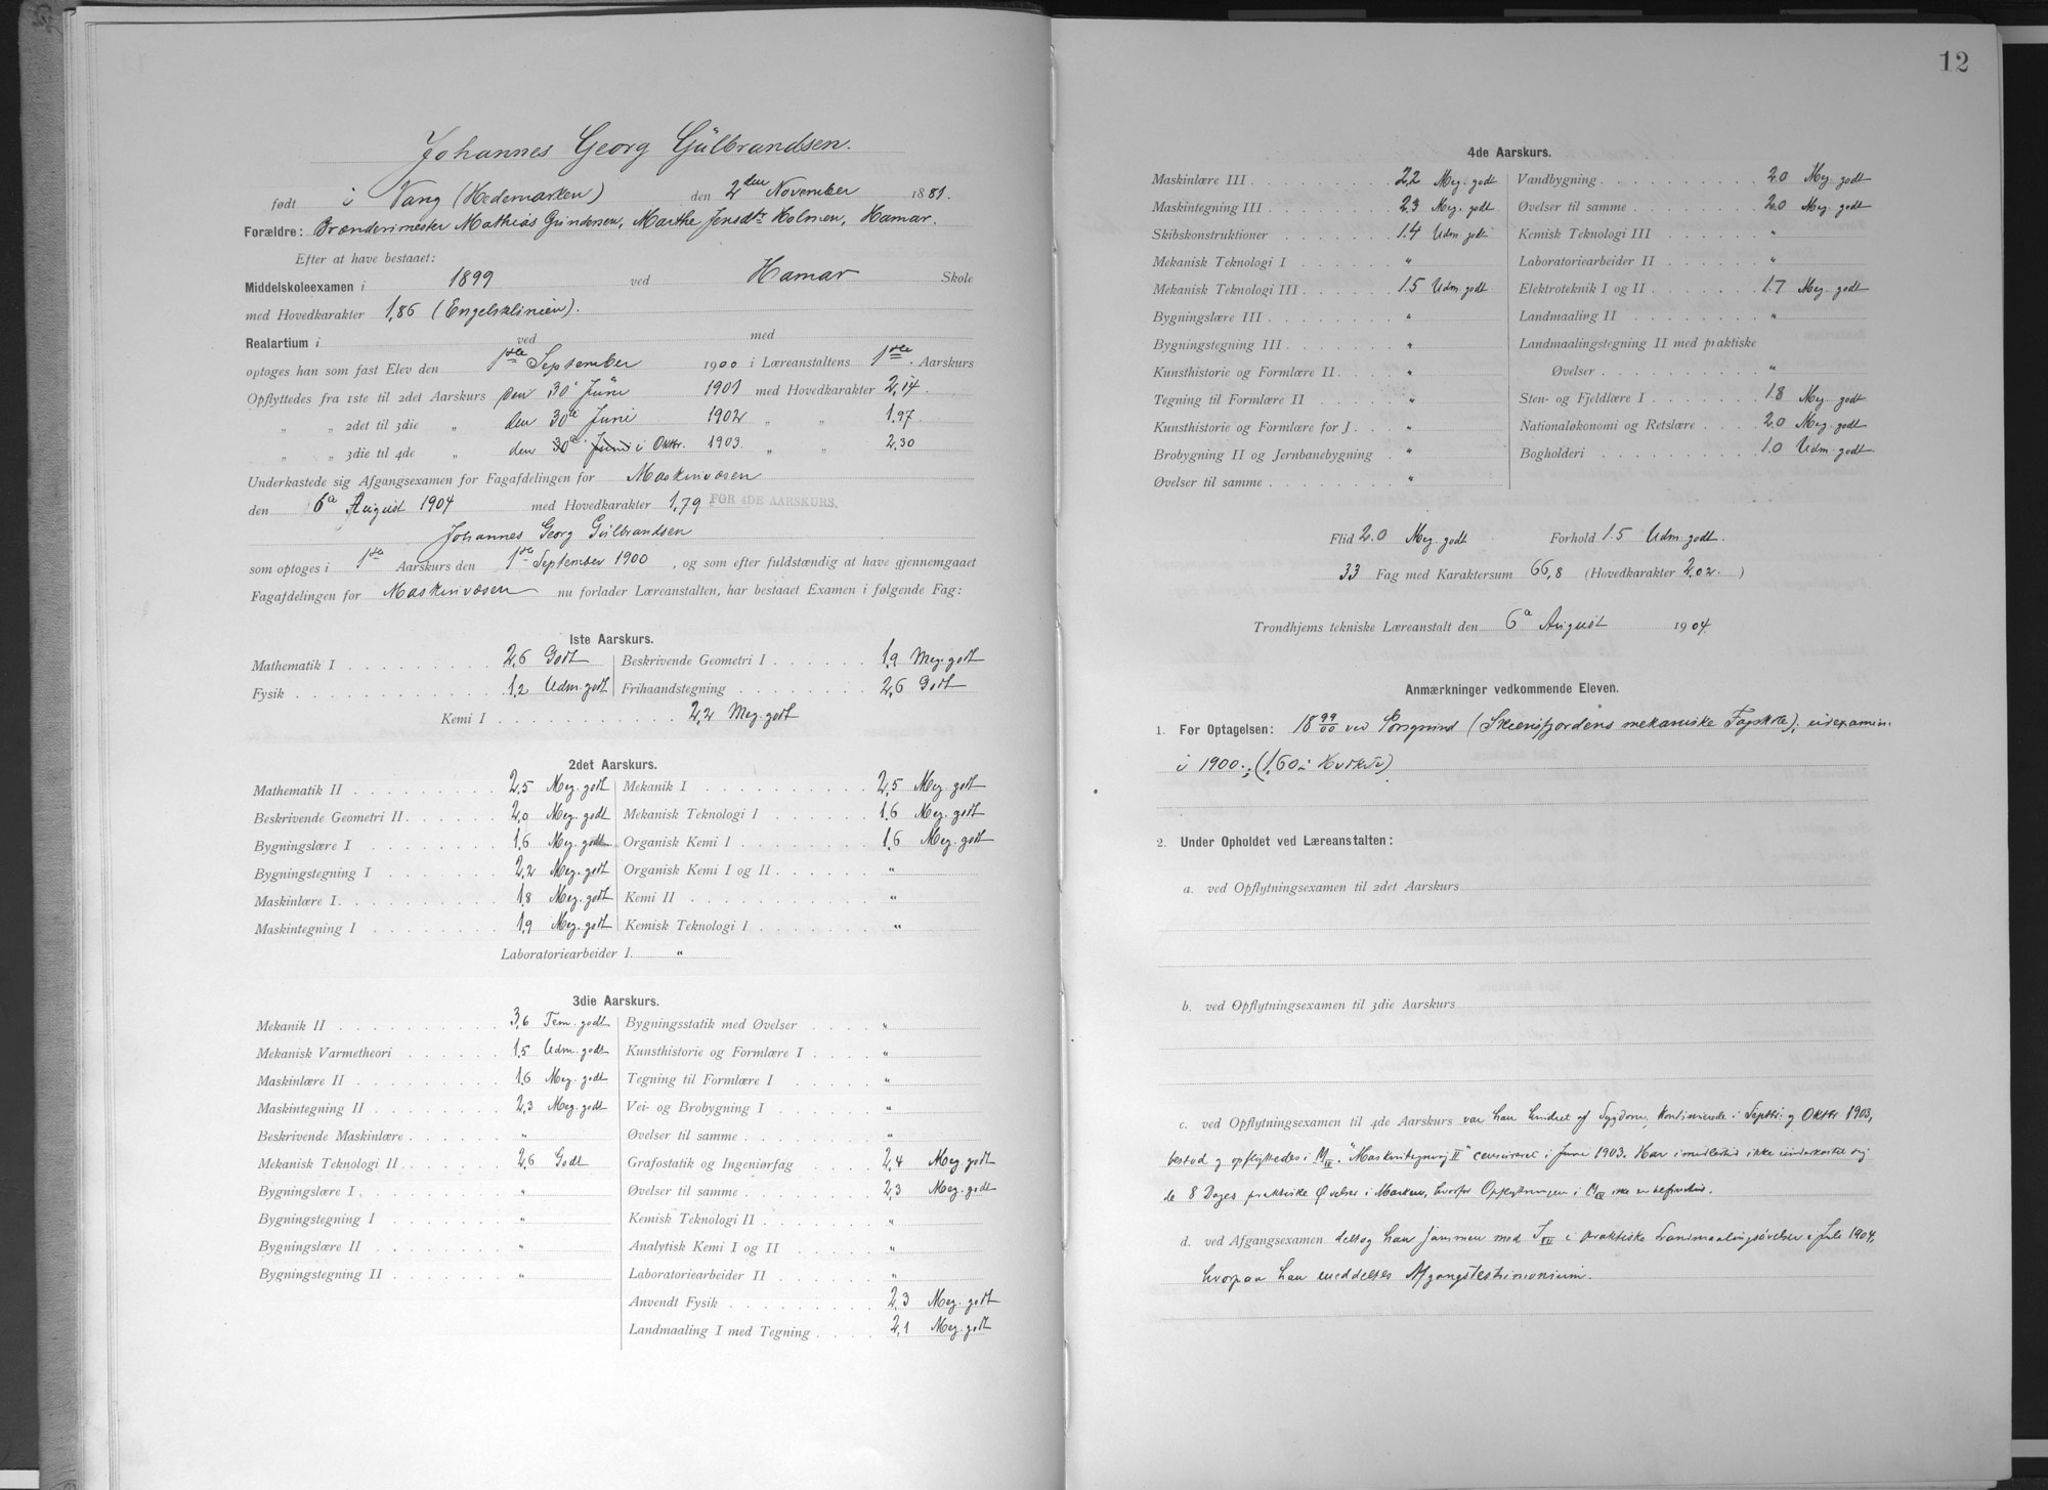 Johannes Georg Gulbrandsen.
født i Vang (Hedemarken) den 2den November 1881.
Forældre: Brænderimester Mathias Gundersen, Marthe Jensdtr Holmen, Hamar.
Efter at have bestaaet:
Middelskoleexamen i 1899 ved Hamar Skole
med Hovedkarakter 1,86 (Engelsklinien).
Realartium i ved med
optoges han som fast Elev den 1ste September 1900 i Læreanstaltens 1ste Aarskurs
Opflyttedes fra 1ste til 2det Aarskurs den 30' Juni 1901 med Hovedkarakter 2,14
„ „ 2det til 3die „ den 30te Juni 1902 „ „ 1,97.
„ „ 3die til 4de „ den 30te Juni i Oktbr. 1903. „ „ 2,30
Underkastede sig Afgangsexamen for Fagafdelingen for Maskinvæsen
den 6te August 1904 med Hovedkarakter 1,79 FOR 4DE AARSKURS.
Johannes Georg Gulbrandsen
som optoges i 1ste Aarskurs den 1ste September 1900, og som efter fuldstændig at have gjennemgaaet
Fagafdelingen for Maskinvæsen nu forlader Læreanstalten, har bestaaet Examen i følgende Fag:
1ste Aarskurs.
Mathematik I 2,6 Godt Beskrivende Geometri I 1,9 Meg. godt
Fysik 1,2 Udm. godt Frihaandstegning 2,6 Godt
Kemi I 2,2 Meg. godt
2det Aarskurs.
Mathematik II 2,5 Meg. godt Mekanik I 2,5 Meg. godt
Beskrivende Geometri II 2,0 Meg. godt Mekanisk Teknologi I 1,6 Meg. godt
Bygningslære I 1,6 Meg. godt Organisk Kemi I 1,6 Meg. godt
Bygningstegning I 2,2 Meg. godt Organisk Kemi I og II "
Maskinlære I 1,8 Meg. godt Kemi II "
Maskintegning I 1,9 Meg. godt Kemisk Teknologi I "
Laboratoriearbeider I "
3die Aarskurs.
Mekanik II 3,6 Tem. godt Bygningsstatik med Øvelser "
Mekanisk Varmetheori 1,5 Udm. godt Kunsthistorie og Formlære I "
Maskinlære II 1,6 Meg. godt Tegning til Formlære I "
Maskintegning II 2,3 Meg. godt Vei- og Brobygning I "
Beskrivende Maskinlære " Øvelser til samme "
Mekanisk Teknologi II 2,6 Godt Grafostatik og Ingeniørfag 2,4 Meg. godt
Bygningslære I " Øvelser til samme 2,3 Meg. godt
Bygningstegning I " Kemisk Teknologi II "
Bygningslære II " Analytisk Kemi I og II "
Bygningstegning II " Laboratoriearbeider II "
Anvendt Fysik 2,3 Meg. godt
Landmaaling I med Tegning 2,1 Meg. godt
12
4de Aarskurs.
Maskinlære III 2,2 Meg. godt Vandbygning 2.0 Meg. godt
Maskintegning III 2.3 Meg. godt Øvelser til samme 2.0 Meg. godt
Skibskonstruktioner 1.4 Udm. godt Kemisk Teknologi III "
Mekanisk Teknologi I " Laboratoriearbeider II "
Mekanisk Teknologi III 1.5 Udm. godt Elektroteknik I og II 1.7 Meg. godt
Bygningslære III " Landmaaling II "
Bygningstegning III " Landmaalingstegning II med praktiske
Kunsthistorie og Formlære II " Øvelser "
Tegning til Formlære II " Sten- og Fjeldlære I 1.8 Meg. godt
Kunsthistorie og Formlære for J " Nationaløkonomi og Retslære 2.0 Meg. godt
Brobygning II og Jernbanebygning " Bogholderi 1.0 Udm. godt
Øvelser til samme "
Flid 2.0 Meg. godt Forhold 1.5 Udm. godt.
33 Fag med Karaktersum 66,8 (Hovedkarakter 2,02. )
Trondhjems tekniske Læreanstalt den 6te August 1904.
Anmærkninger vedkommende Eleven.
1. Før Optagelsen: 18 99/00 ved Porsgrund (Skiensfjordens mekaniske Fagskole); udexamin.
i 1900.; (1,60 i Hvdkr.)
2. Under Opholdet ved Læreanstalten:
a. ved Opflytningsexamen til 2det Aarskurs
b. ved Opflytningsexamen til 3die Aarskurs
c. ved Opflytningsexamen til 4de Aarskurs var han hindret af Sygdom, kontinuerede i Septbr. og Oktbr 1903,
bestod og opflyttedes i M IV. "Maskintegning II" censureret i Juni 1903. Har imidlertid ikke underkastet sig
de 8 Dages praktiske Øvelser i Marken, hvorfor Opflytningen i M IV ikke er
d. ved Afgangsexamen deltog han sammen med J III i praktiske Landmaalingsøvelser i Juli 1904,
hvorpaa han meddeltes Afgangstestimonium.